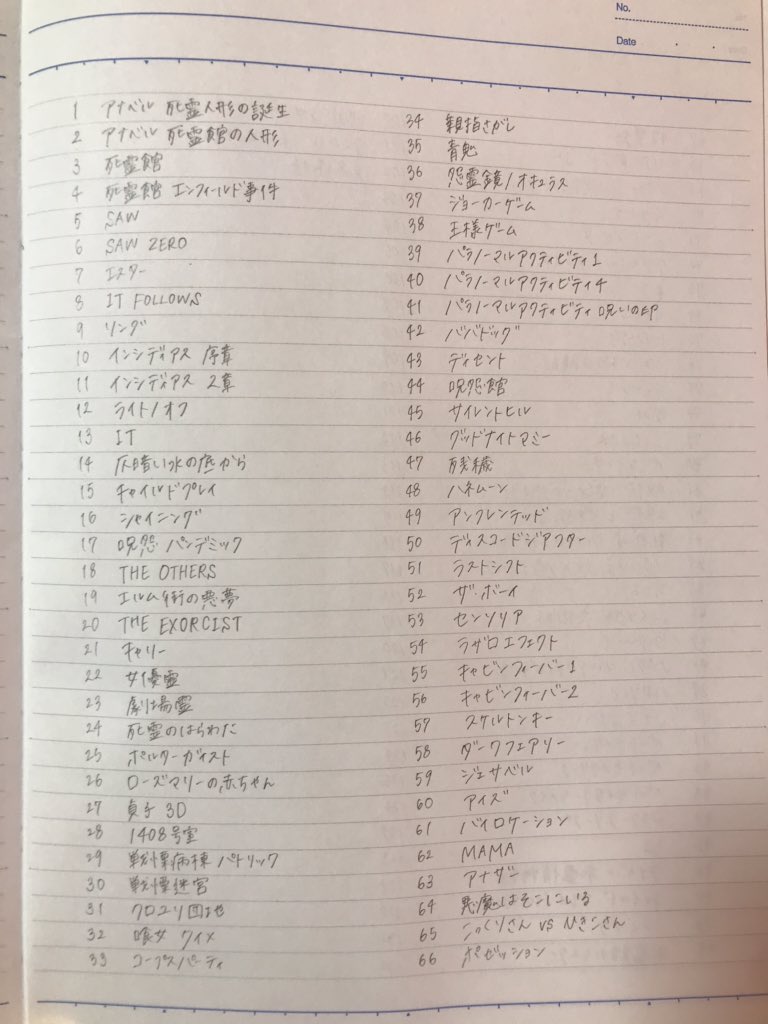 No.
Date
1 アナベル 死霊人形の誕生
2 アナベル 死霊館の人形
3 死霊館
4 死霊館 エンフィールド事件
5 SAW
6 SAW ZERO
7 エスター
8 IT FOLLOWS
9 リング
10 インシディアス 序章
11 インシディアス 2章
12 ライト/オフ
13 IT
14 仄暗い水の底から
15 チャイルドプレイ
16 シャイニング
17 呪怨 パンデミック
18 THE OTHERS
19 エルム街の悪夢
20 THE EXORCIST
21 キャリー
22 女優霊
23 劇場霊
24 死霊のはらわた
25 ポルターガイスト
26 ローズマリーの赤ちゃん
27 貞子 3D
28 1408号室
29 戦慄病棟 パトリック
30 戦慄迷宮
31 クロユリ団地
32 喰女 クイメ
33 コープスパーティ
34 親指さがし
35 青鬼
36 怨霊鏡/オキュラス
37 ジョーカーゲーム
38 王様ゲーム
39 パラノーマルアクティビティ1
40 パラノーマルアクティビティ4
41 パラノーマルアクティビティ 呪いの印
42 ババドッグ
43 ディセント
44 呪怨館
45 サイレントヒル
46 グッドナイトマミー
47 残穢
48 ハネムーン
49 アンフレンデッド
50 ディスコードジアフター
51 ラストシフト
52 ザ・ボーイ
53 センソリア
54 ラザロエフェクト
55 キャビンフィーバー1
56 キャビンフィーバー2
57 スケルトンキー
58 ダークフェアリー
59 ジェサベル
60 アイズ
61 バイロケーション
62 MAMA
63 アナザー
64 悪魔はそこにいる
65 こっくりさん VS ひきこさん
66 ポゼッション